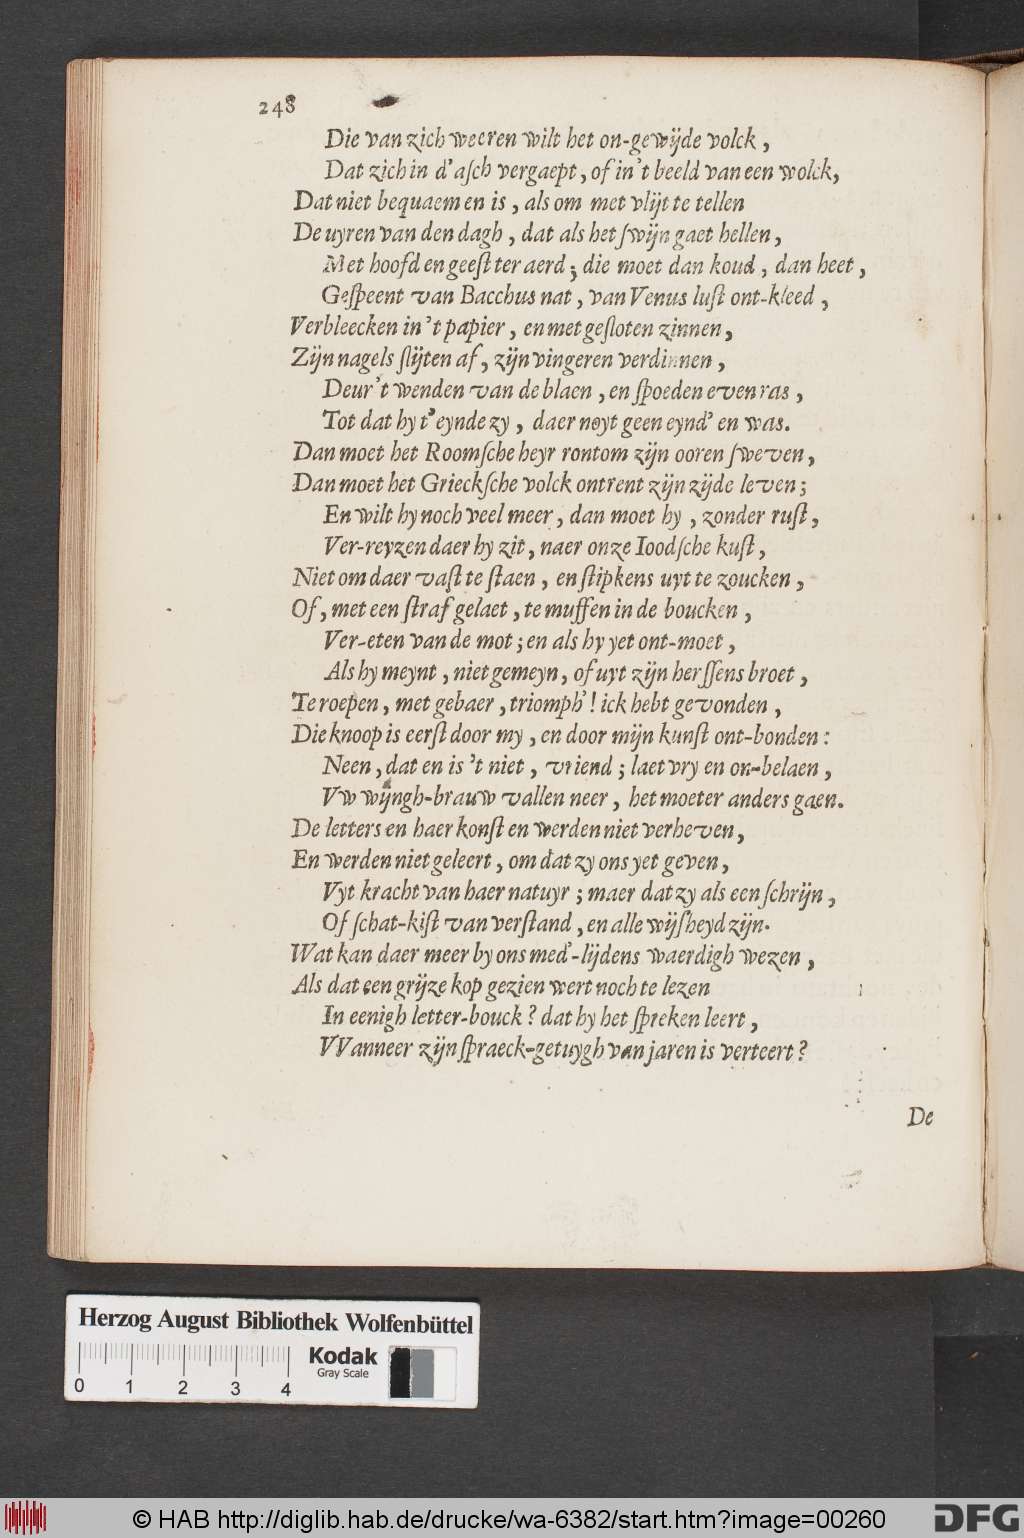 248
Die van zich weeren wilt het on-gewijde volck,
Dat zich in d'asch vergaept, of in't beeld van een wolck,
Dat niet bequaem en is, als om met vlijt te tellen
De uyren van den dagh, dat als het swijn gaet hellen,
Met hoofd en geest ter aerd; die moet dan koud, dan heet,
Gespeent van Bacchus nat, van Venus lust ont-kleed,
Verbleecken in't papier, en met gesloten zinnen,
Zijn nagels slijten af, zijn vingeren verdinnen,
Deur't wenden van de blaen, en spoeden even ras,
Tot dat hy t'eynde zy, daer noyt geen eynd' en was.
Dan moet het Roomsche heyr rontom zijn ooren sweven,
Dan moet het Griecksche volck ontrent zijn zijde leven;
En wilt hy noch veel meer, dan moet hy, zonder rust,
Ver-reyzen daer hy zit, naer onze Ioodsche kust,
Niet om daer vast te staen, en stipkens uyt te zoucken,
Of, met een straf gelaet, te muffen in de boucken,
Ver-eten van de mot; en als hy yet ont-moet,
Als hy meynt, niet gemeyn, of uyt zijn herssens broet,
Te roepen, met gebaer, triomph'! ick hebt gevonden,
Die knoop is eerst door my, en door mijn kunst ont-bonden:
Neen, dat en is 't niet, vriend; laet vry en on-belaen,
Vw wijngh-brauw vallen neer, het moeter anders gaen.
De letters en haer konst en werden niet verheven,
En werden niet geleert, om dat zy ons yet geven,
Vyt kracht van haer natuyr; maer dat zy als een schrijn,
Of schat-kist van verstand, en alle wijsheyd zijn.
Wat kan daer meer by ons med'-lijdens waerdigh wezen,
Als dat een grijze kop gezien wert noch te lezen
In eenigh letter-bouck? dat hy het spreken leert,
VVanneer zijn spraeck-getuygh van jaren is verteert?
De
Herzog August Bibliothek Wolfenbüttel
Kodak
Gray Scale
0 1 2 3 4
© HAB http://diglib.hab.de/drucke/wa-6382/start.htm?image=00260
DFG